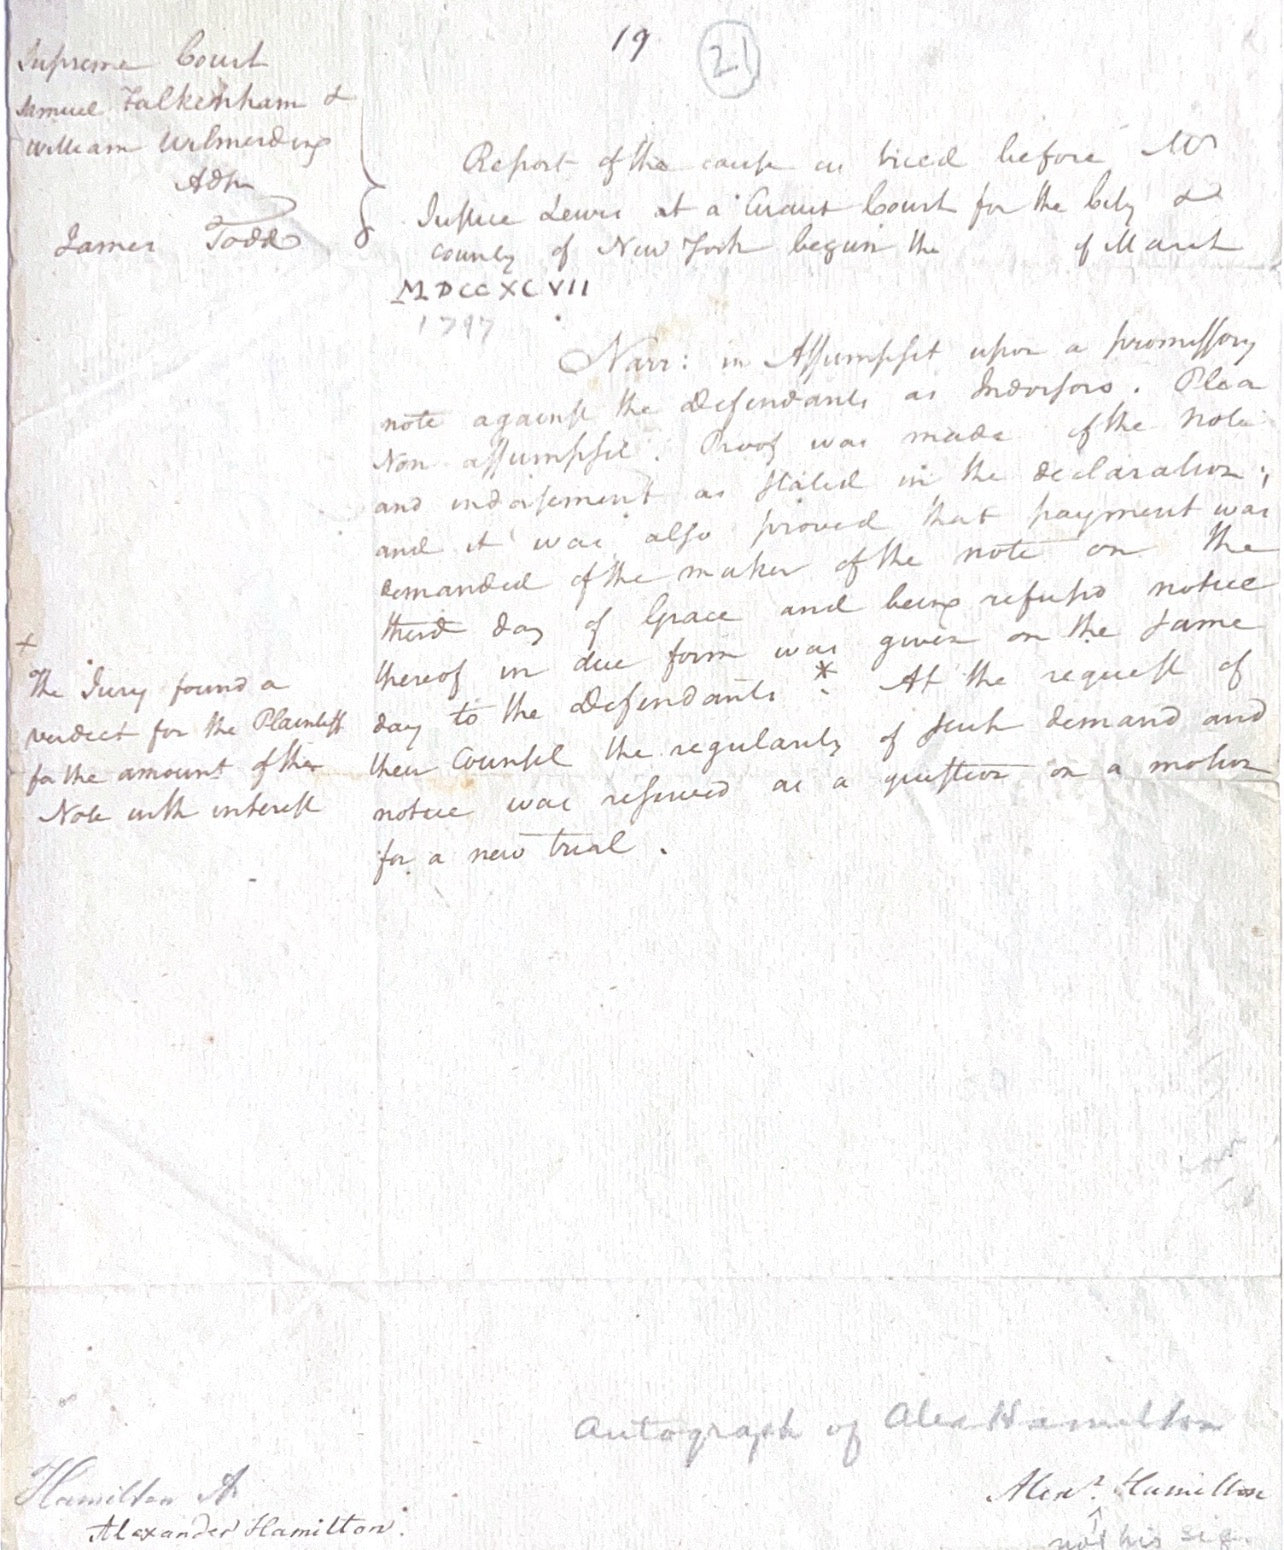 19
21
Supreme Court
Samuel Falkenham &
William Wilmerding
Adsm
James Todd
Report of the cause as tried before Mr
Justice Lewis at a Circuit Court for the City &
County of New York begun the of March
MDCCXCVII
1797
Narr: in Assumpsit upon a promissory
note against the Defendants as Indorsors. Plea
Non assumpsit. Proof was made of the Note
and indorsement as stated in the declaration;
and it was also proved that payment was
demanded of the maker of the note on the
third day of Grace and being refused notice
thereof in due form was given on the same
day to the Defendants *. At the request of
their Counsel the regularity of such demand and
notice was reserved as a question on a motion
for a new trial.
x
The Jury found a
verdict for the Plaintiff
for the amount of the
Note with interest
Autograph of Alex Hamilton
Hamilton A.
Alexander Hamilton.
Alexr. Hamilton
not his sig.